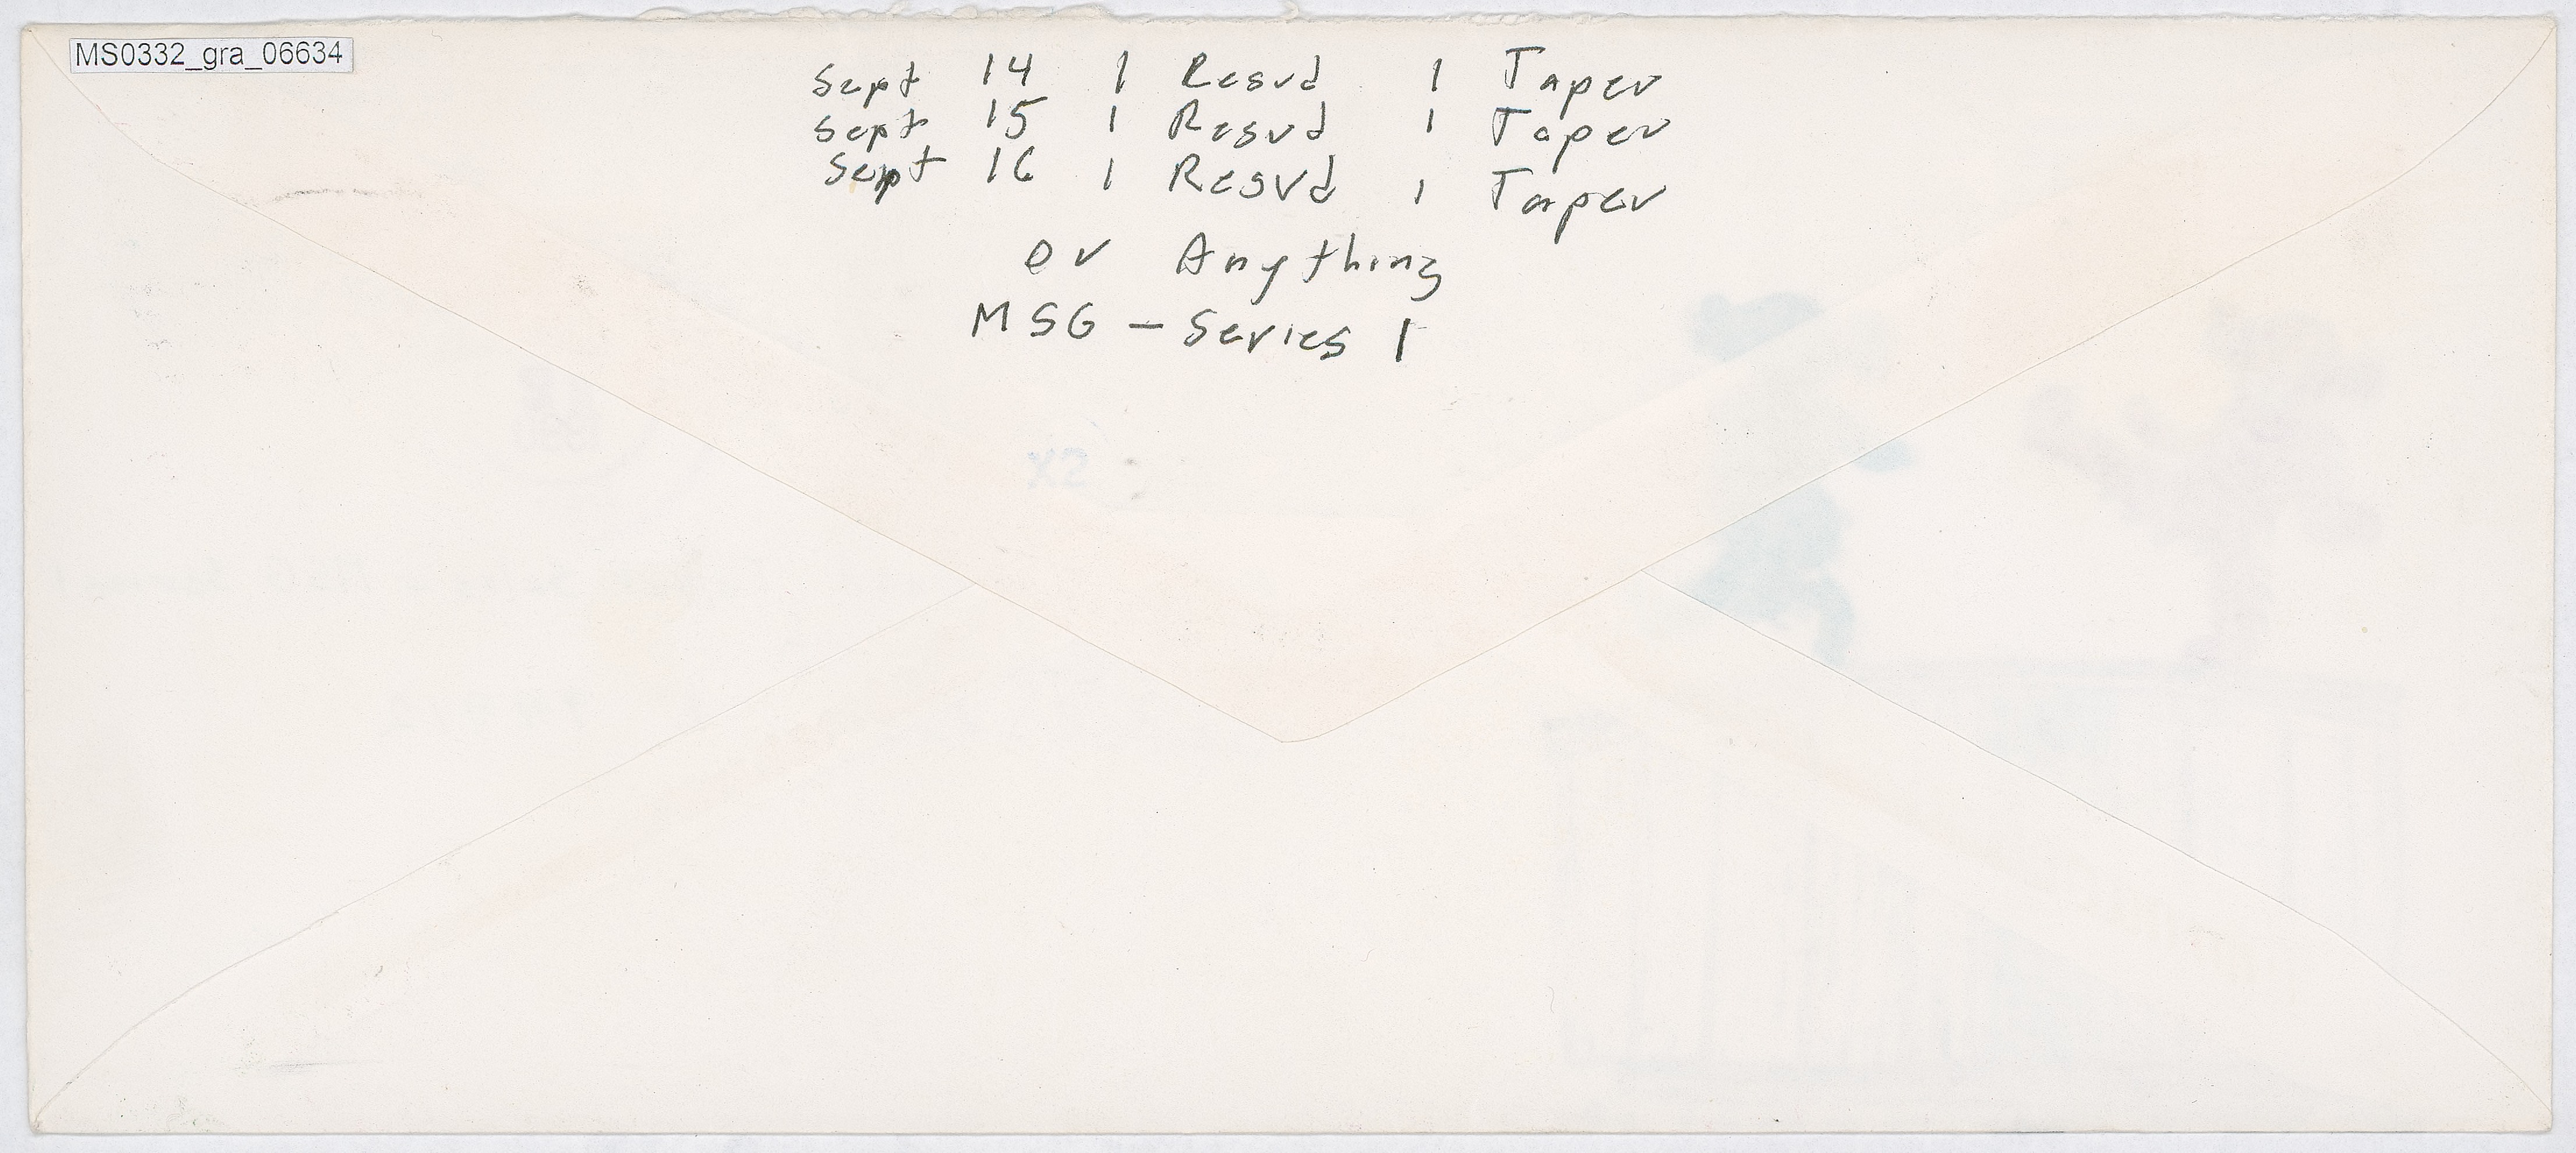 MS0332_gra_06634
Sept 14 1 Resvd 1 Taper
Sept 15 1 Resvd 1 Taper
Sept 16 1 Resvd 1 Taper
or Anything
MSG - Series 1
X2